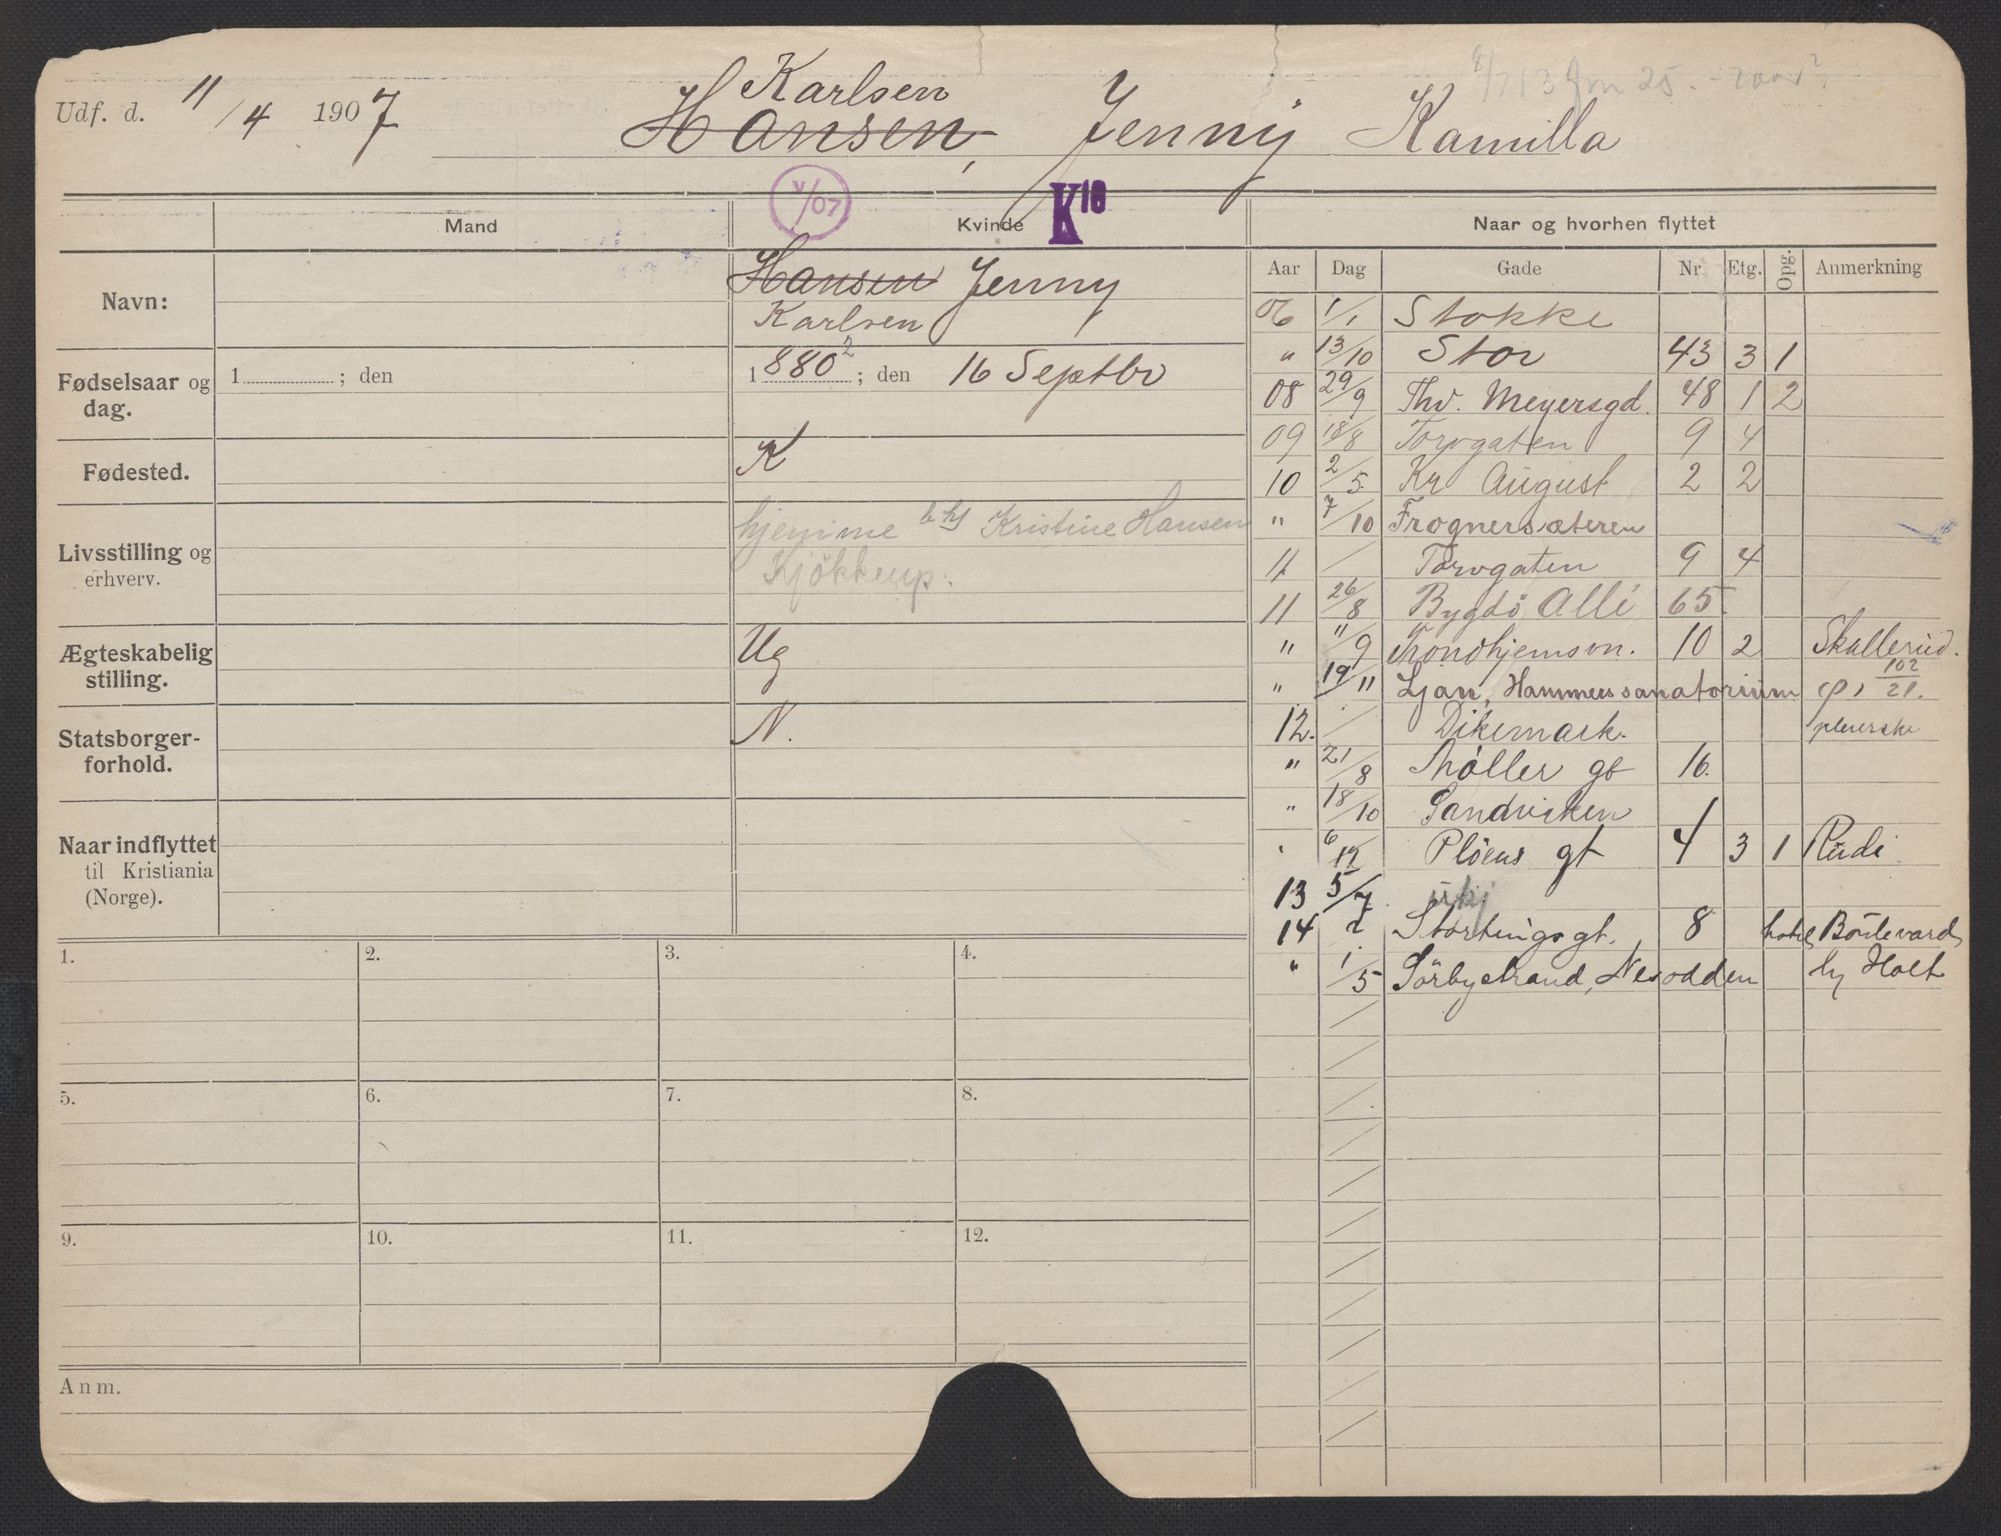 Udf. d. 11/4 1907
Karlsen
Hansen, Jenny Kamilla
V/07
K10
Mand
Kvinde
Naar og hvorhen flyttet
Aar Dag Gade Nr. Etg. Opg. Anmerkning
Navn:
Hansen Jenny
Karlsen
Fødselsaar og dag.
1 ; den
1 880 2 ; den 16 Septbr
Fødested.
K
Livsstilling og erhverv.
hjemme Kristine Hansen
Kjøkkenp.
Ægteskabelig stilling.
Ug
Statsborgerforhold.
N.
Naar indflyttet til Kristiania (Norge).
06 1/1 Stokke
" 13/10 Stor 43 3 1
08 29/9 Thv. Meyersgd. 48 1 2
09 18/8 Torvgaten 9 4
10 2/5 Kr August 2 2
" 7/10 Frognersæteren
11 / Torvgaten 9 4
11 26/8 Bygdö Allé 65
" 11/9 Trondhjemsvn. 10 2 Skallerud.
" 19/11 Ljan, Hammers sanatorium 102/21.
12. / Dikemark. pleierske
" 21/8 Møller gt 16.
" 18/10 Sandviken
" 6/12 Pløens gt 4 3 1 Rudi
13 5/7 ukj
14 Stortingsgt. 8 hotel Boulevard
" 1/5 Sörbystrand, Nesodden by Holt
1. 2. 3. 4.
5. 6. 7. 8.
9. 10. 11. 12.
Anm.